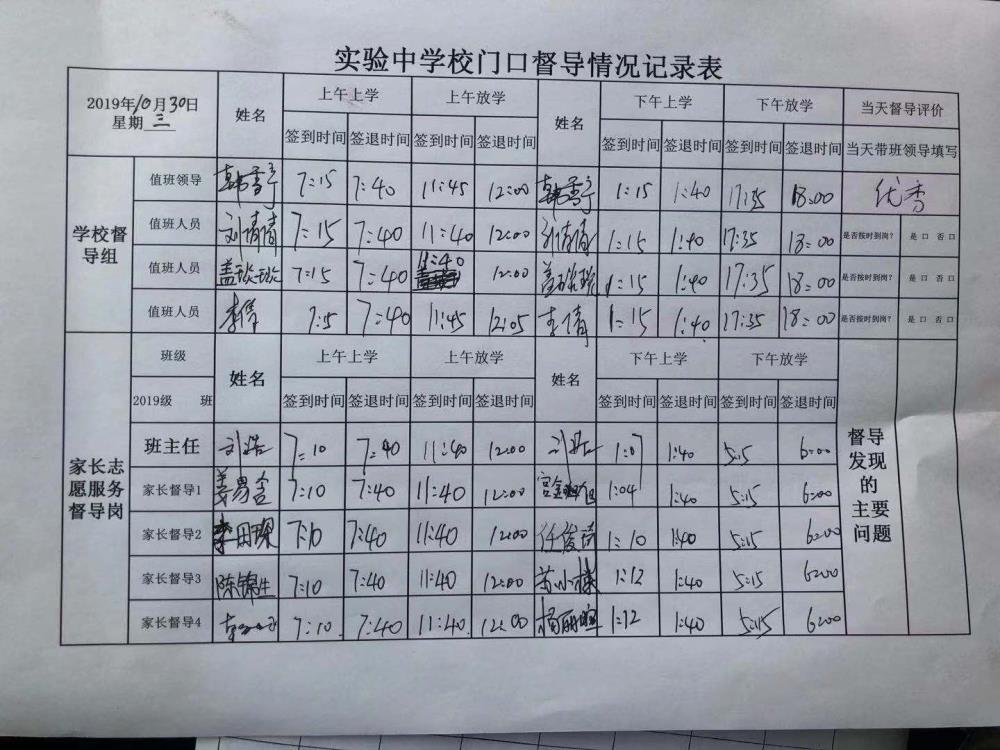 实验中学校门口督导情况记录表
2019年10月30日 星期三 姓名 上午上学 上午放学 姓名 下午上学 下午放学 当天督导评价
签到时间 签退时间 签到时间 签退时间 签到时间 签退时间 签到时间 签退时间 当天带班领导填写
学校督导组
值班领导 7:15 7:40 11:45 12:00 1:15 1:40 17:35 18:00 优秀
值班人员 刘倩倩 7:15 7:40 11:40 12:00 刘倩倩 1:15 1:40 17:35 18:00 是否按时到岗? 是 口 否 口
值班人员 盖琰琰 7:15 7:40 11:40 12:00 盖琰琰 1:15 1:40 17:35 18:00 是否按时到岗? 是 口 否 口
值班人员 李倩 7:15 7:40 11:45 12:05 李倩 1:15 1:40 17:35 18:00 是否按时到岗? 是 口 否 口
家长志愿服务督导岗
班级 姓名 上午上学 上午放学 姓名 下午上学 下午放学
2019级 班 签到时间 签退时间 签到时间 签退时间 签到时间 签退时间 签到时间 签退时间
班主任 刘浩 7:10 7:40 11:40 12:00 刘浩 1:07 1:40 5:15 6:00 督导发现的主要问题
家长督导1 7:10 7:40 11:40 12:00 1:04 1:40 5:15 6:00
家长督导2 7:10 7:40 11:40 12:00 1:10 1:40 5:15 6:00
家长督导3 陈锦生 7:10 7:40 11:40 12:00 1:12 1:40 5:15 6:00
家长督导4 7:10 7:40 11:40 12:00 1:12 1:40 5:15 6:00